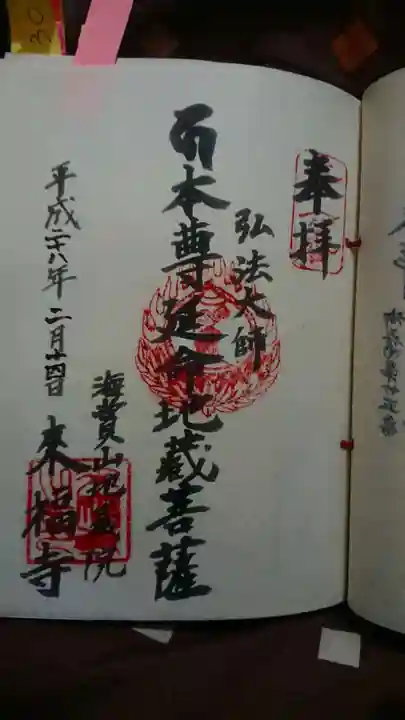 奉拝
弘法大師
本尊延命地蔵菩薩
海賞山地蔵院
来福寺
平成二十八年二月十四日
30